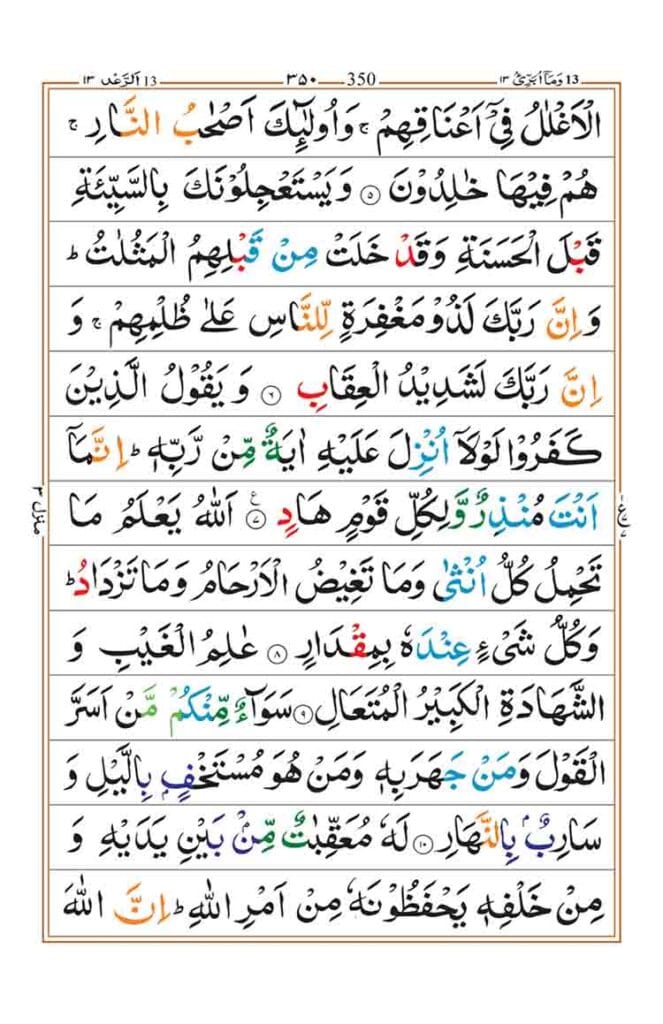 13 وَمَاۤ اُبَرِّئُ ١٣ 350 ٣٥٠ 13 اَلرَّعْد ١٣
الْاَغْلٰلُ فِیْۤ اَعْنَاقِهِمْ ۚ وَاُولٰٓئِكَ اَصْحٰبُ النَّارِ ۚ
هُمْ فِیْهَا خٰلِدُوْنَ ۝٥ وَیَسْتَعْجِلُوْنَكَ بِالسَّیِّئَةِ
قَبْلَ الْحَسَنَةِ وَقَدْ خَلَتْ مِنْ قَبْلِهِمُ الْمَثُلٰتُ ؕ
وَاِنَّ رَبَّكَ لَذُوْ مَغْفِرَةٍ لِّلنَّاسِ عَلٰی ظُلْمِهِمْ ۚ وَ
اِنَّ رَبَّكَ لَشَدِیْدُ الْعِقَابِ ۝٦ وَیَقُوْلُ الَّذِیْنَ
كَفَرُوْا لَوْلَاۤ اُنْزِلَ عَلَیْهِ اٰیَةٌ مِّنْ رَّبِّهٖ ؕ اِنَّمَاۤ
اَنْتَ مُنْذِرٌ وَّلِكُلِّ قَوْمٍ هَادٍ ۝٧ اَللّٰهُ یَعْلَمُ مَا
منزل ٣
تَحْمِلُ كُلُّ اُنْثٰی وَمَا تَغِیْضُ الْاَرْحَامُ وَمَا تَزْدَادُ ؕ
وَكُلُّ شَیْءٍ عِنْدَهٗ بِمِقْدَارٍ ۝٨ عٰلِمُ الْغَیْبِ وَ
الشَّهَادَةِ الْكَبِیْرُ الْمُتَعَالِ ۝٩ سَوَآءٌ مِّنْكُمْ مَّنْ اَسَرَّ
الْقَوْلَ وَمَنْ جَهَرَ بِهٖ وَمَنْ هُوَ مُسْتَخْفٍۭ بِالَّیْلِ وَ
سَارِبٌۢ بِالنَّهَارِ ۝١٠ لَهٗ مُعَقِّبٰتٌ مِّنْۢ بَیْنِ یَدَیْهِ وَ
مِنْ خَلْفِهٖ یَحْفَظُوْنَهٗ مِنْ اَمْرِ اللّٰهِ ؕ اِنَّ اللّٰهَ